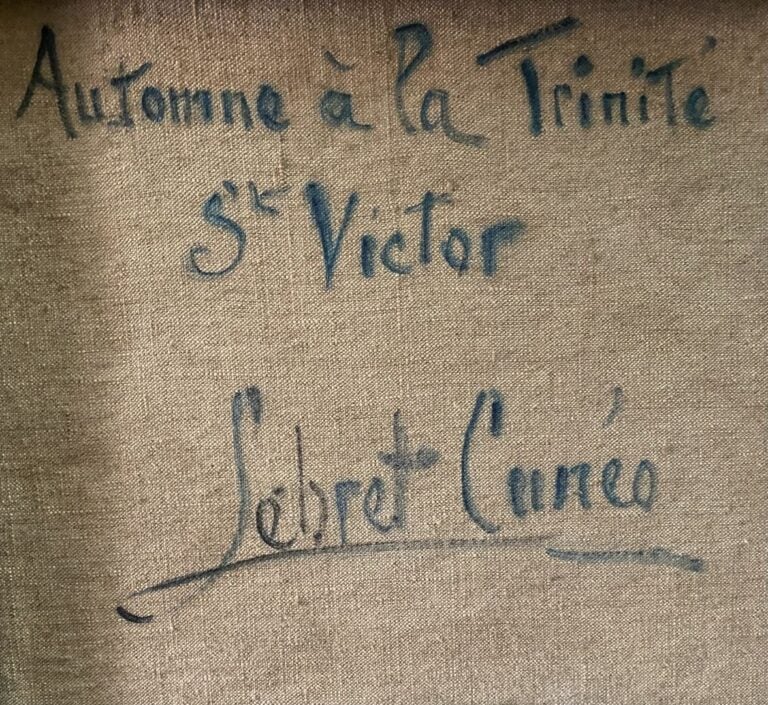 Automne à la Trinité
St Victor
Lebret Cunéo